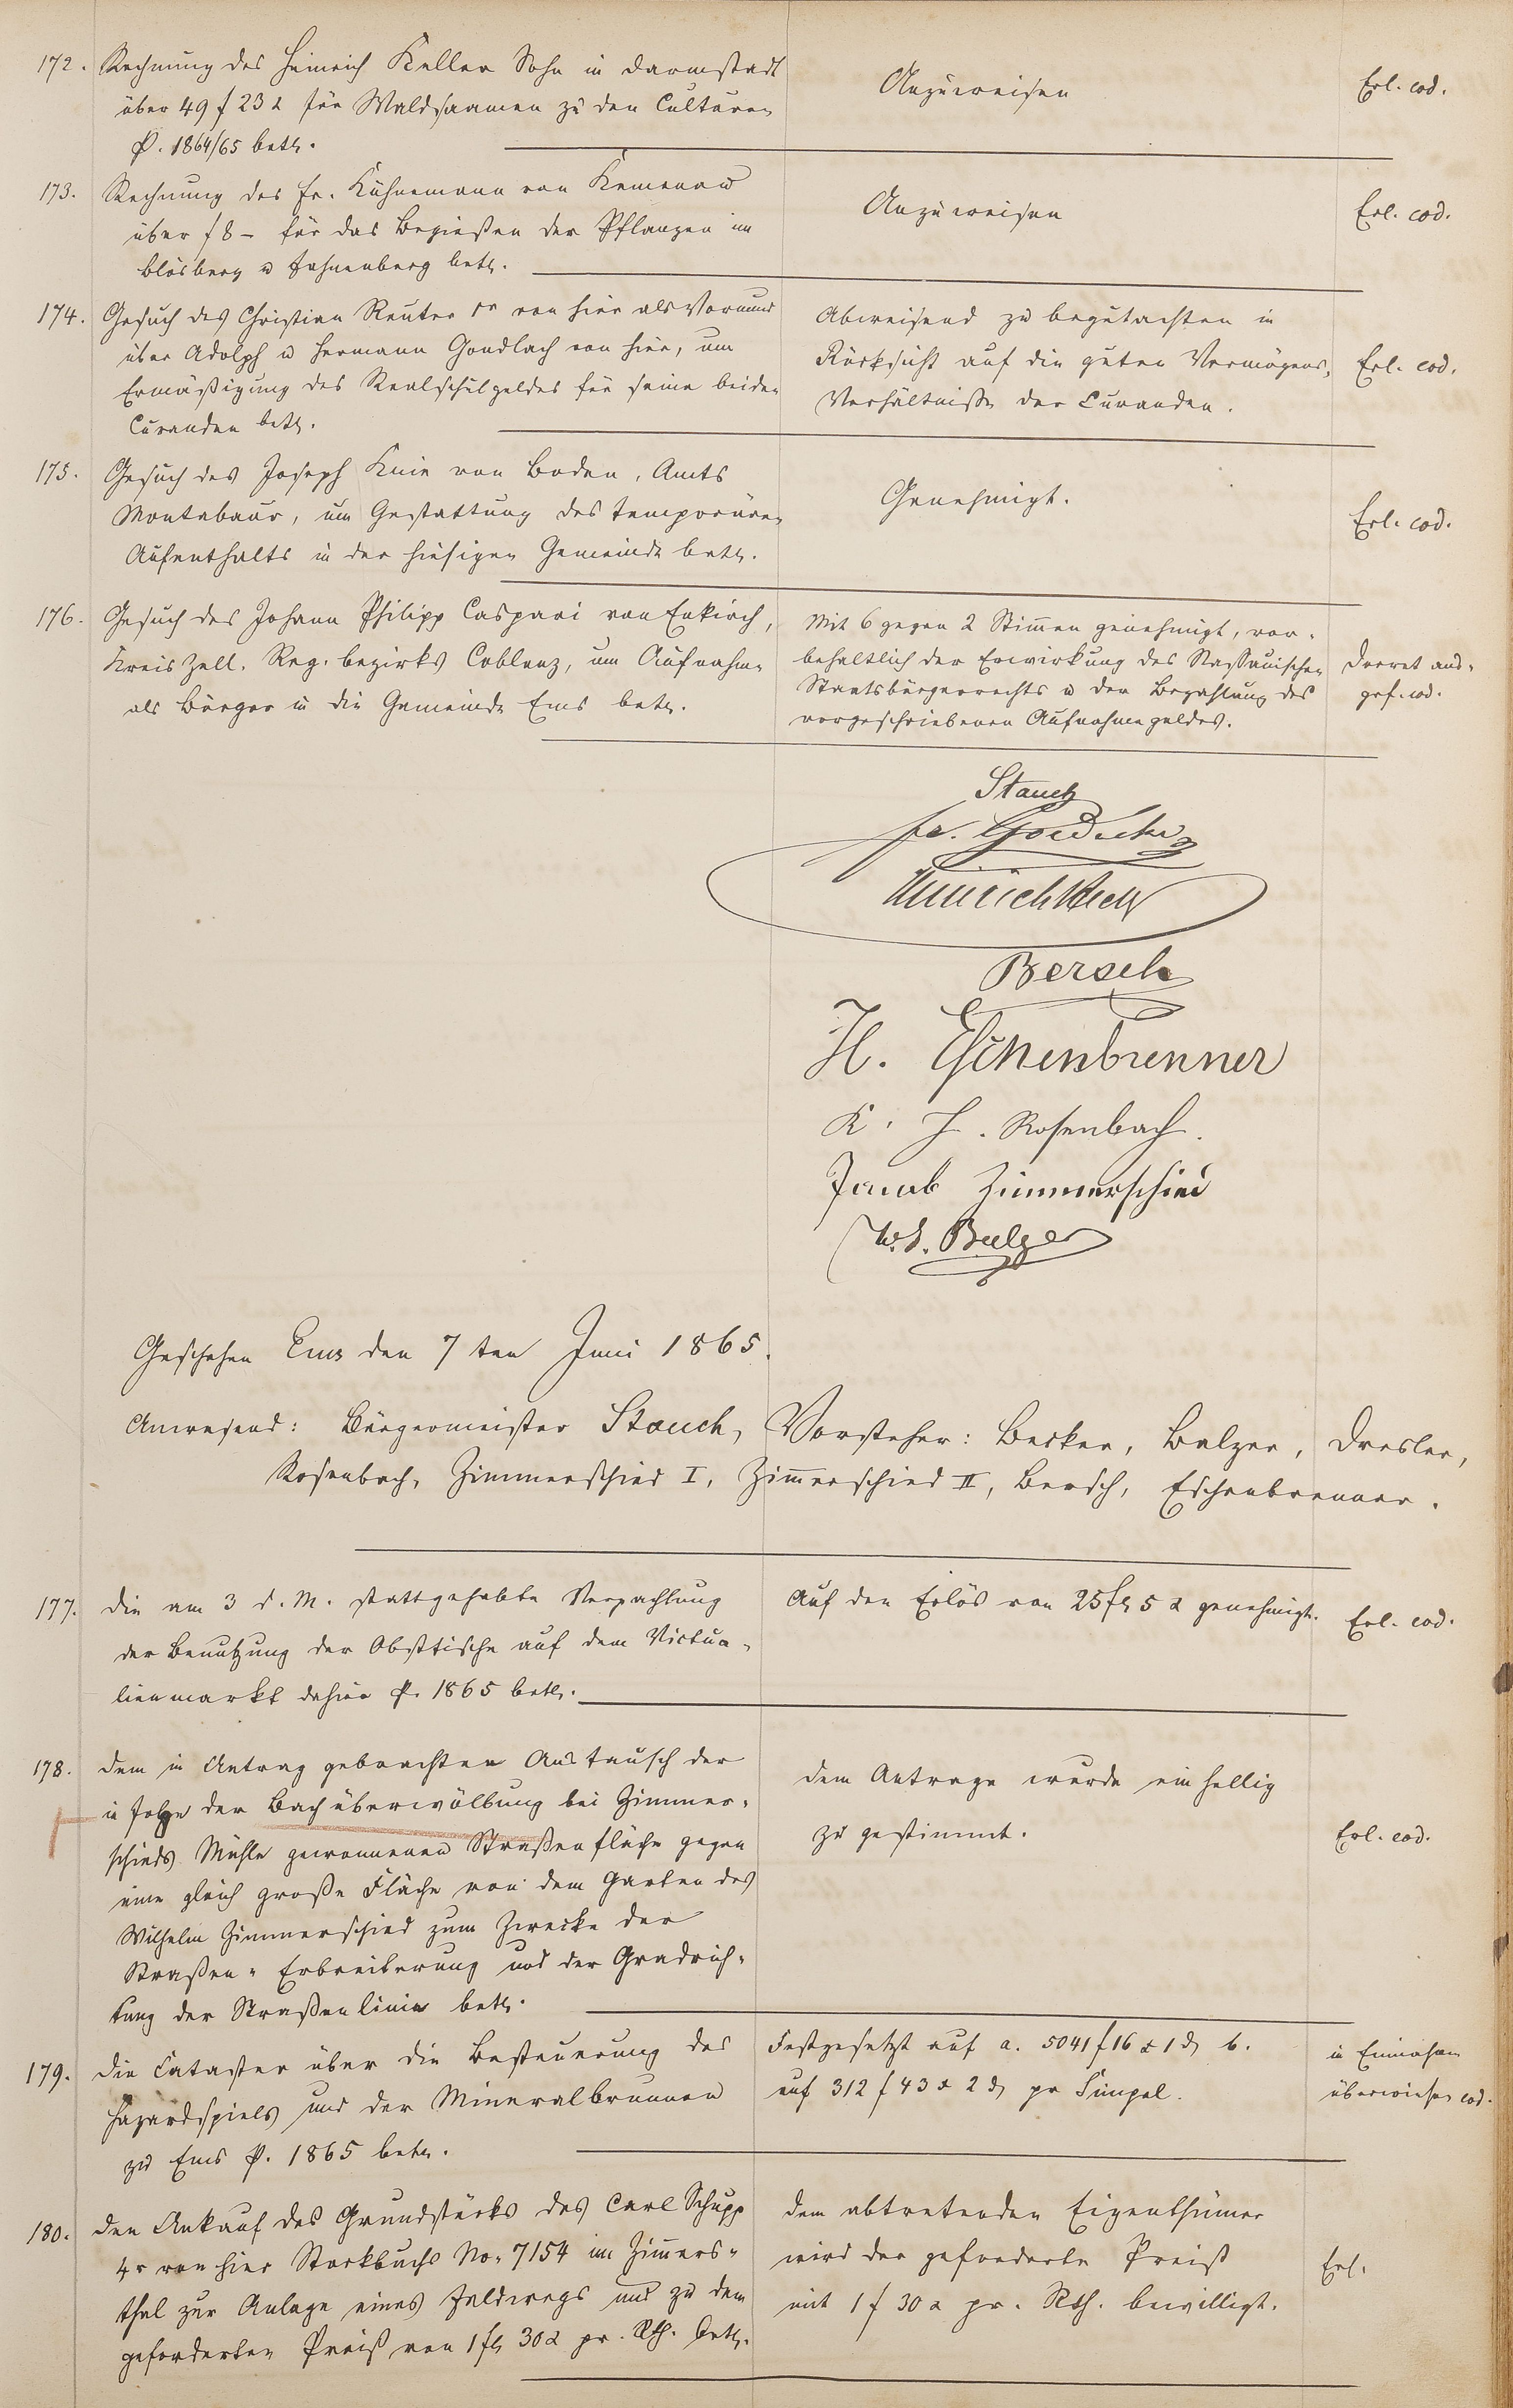 172. Rechnung des Heinrich Keller Sohn in Darmstadt
über 49 f 23 x für Waldsaamen zu den Culturen
p. 1864/65 betr.
Anzuweisen
Erl. eod.
173. Rechnung des Fr. Kühnemann von Kemenau
über f 8 – für das Begießen der Pflanzen im
Blösberg u Hahnenberg betr.
Anzuweisen
Erl. eod.
174. Gesuch des Christian Reuter 1r von hier als Vormund
über Adolph u Hermann Gondlach von hier, um
Ermäßigung des Realschulgeldes für seine beiden
Curanden betr.
Abweisend zu begutachten in
Rücksicht auf die guten Vermögens-
Verhältniße der Curanden.
Erl. eod.
175. Gesuch des Joseph Knie von Boden, Amts
Montabaur, um Gestattung des temporären
Aufenthalts in der hiesigen Gemeinde betr.
Genehmigt.
Erl. eod.
176. Gesuch des Johann Philipp Caspari von Enkirch,
Kreis Zell. Reg. bezirks Coblenz, um Aufnahme
als Bürger in die Gemeinde Ems betr.
Mit 6 gegen 2 Stimmen genehmigt, vor-
behaltlich der Erwirkung des Nassauischen
Staatsbürgerrechts u der Bezahlung des
vorgeschriebenen Aufnahmegeldes.
Decret aus-
gef. eod.
Stauch
Bersch
H. Eschenbrenner
K. H. Rosenbach.
Jacob Zimmerschied
W. Balzer
Geschehen Ems den 7ten Juni 1865.
Anwesend: Bürgermeister Stauch, Vorsteher: Becker, Balzer, Dresler,
Rosenbach, Zimmerschied I, Zimmerschied II, Bersch, Eschenbrenner.
177. Die am 3 d. M. stattgehabte Verpachtung
der Benutzung der Obsttische auf dem Victua-
lienmarkt dahier p. 1865 betr.
Auf den Erlös von 25 fl 5 x genehmigt.
Erl. eod.
178. Dem in Antrag gebrachten Austausch der
in Folge der Bachüberwölbung bei Zimmer-
schieds Mühle gewonnenen Straßenfläche gegen
eine gleich große Fläche von dem Garten des
Wilhelm Zimmerschied zum Zwecke der
Straßen-Erbreiterung und der Gradrich-
tung der Straßenlinie betr.
Dem Antrage wurde einhellig
zugestimmt.
Erl. eod.
179. Die Cataster über die Besteuerung des
Hazardspiels und der Mineralbrunnen
zu Ems p. 1865 betr.
Festgesetzt auf a. 5041 f 16 x 1 d b.
auf 312 f 43 x 2 d pr Simpel.
in Einnahme
überwiesen eod.
180. Den Ankauf des Grundstücks des Carl Schupp
4r von hier Stockbuchs No. 7154 im Zimmers-
thal zur Anlage eines Feldwegs und zu dem
geforderten Preiß von 1 fl 30 x pr. Rth. betr.
Dem abtretenden Eigenthümer
wird der geforderte Preiß
mit 1 f 30 x pr. Rth. bewilligt.
Erl.